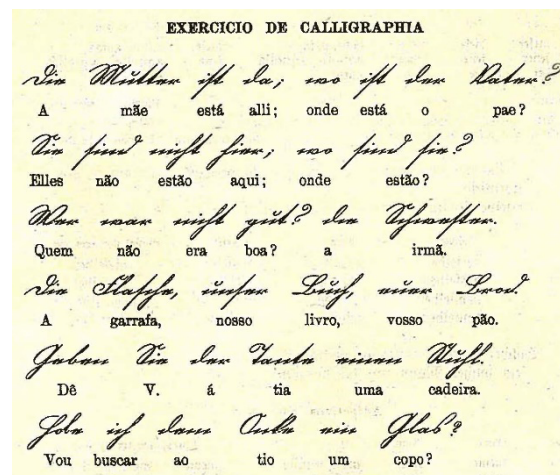 EXERCICIO DE CALLIGRAPHIA
Die Mutter ist da; wo ist der Vater?
A mãe está alli; onde está o pae?
Sie sind nicht hier; wo sind sie?
Elles não estão aqui; onde estão?
Wer war nicht gut? die Schwester.
Quem não era boa? a irmã.
Die Flasche, unser Buch, euer Brod.
A garrafa, nosso livro, vosso pão.
Geben Sie der Tante einen Stuhl.
Dê V. á tia uma cadeira.
ich dem ein Glas?
Vou buscar ao tio um copo?